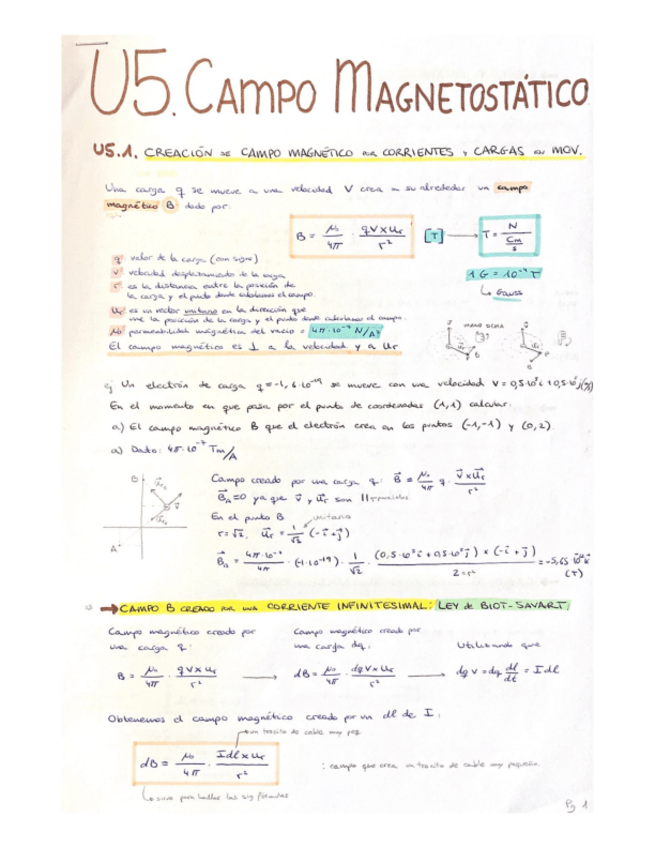 U5. CAMPO MAGNETOSTÁTICO
U5.1. CREACIÓN DE CAMPO MAGNÉTICO POR CORRIENTES Y CARGAS EN MOV.
Una carga q se mueve a una velocidad V crea a su alrededor un campo
magnético B dado por:
B = μ₀/4π · q v x ur / r² [T] → T = N / (C m/s)
q valor de la carga (con signo)
v velocidad desplazamiento de la carga
1 G = 10⁻⁴ T
r es la distancia entre la posición de
la carga y el punto donde calculamos el campo.
Gauss
ur es un vector unitario en la dirección que
une la posición de la carga y el punto donde calculamos el campo.
μ₀ permeabilidad magnética del vacío = 4π·10⁻⁷ N/A²
MANO DCHA
El campo magnético es ⊥ a la velocidad y a ur
ej Un electrón de carga q = -1,6·10⁻¹⁹ se mueve con una velocidad V = 0,5·10⁵i + 0,5·10⁵j
En el momento en que pasa por el punto de coordenadas (1,1) calcular:
a) El campo magnético B que el electrón crea en los puntos (-1,-1) y (0,2).
a) Dato: 4π·10⁻⁷ Tm/A
B
A
Campo creado por una carga q: B = μ₀/4π q · v x ur / r²
B_A = 0 ya que v y ur son || → paralelos
En el punto B unitario
r = √2, ur = 1/√2 (-i + j)
B_A = 4π·10⁻⁷/4π · (-1·10⁻¹⁹) · 1/√2 · (0,5·10⁵i + 0,5·10⁵j) x (-i + j) / 2 = r² = -5,65 · k (T)
→ CAMPO B CREADO POR UNA CORRIENTE INFINITESIMAL: LEY de BIOT-SAVART
Campo magnético creado por
una carga q:
Campo magnético creado por
una carga dq:
Utilizando que
B = μ₀/4π · q v x ur / r² → dB = μ₀/4π · dq v x ur / r² → dq v = dq dl/dt = I dl
Obtenemos el campo magnético creado por un dl de I:
un trocito de cable muy peq
dB = μ₀/4π · I dl x ur / r²
: campo que crea un trocito de cable muy pequeño.
sirve para hallar las sig fórmulas
Pg 1